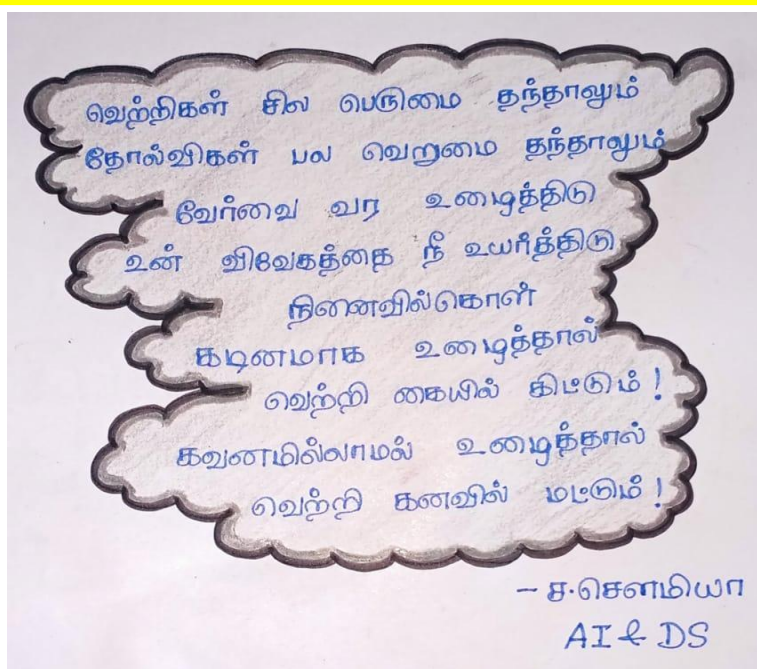 வெற்றிகள் சில பெருமை தந்தாலும்
தோல்விகள் பல வெறுமை தந்தாலும்
வேர்வை வர உழைத்திடு
உன் விவேகத்தை நீ உயர்த்திடு
நினைவில்கொள்
கடினமாக உழைத்தால்
வெற்றி கையில் கிட்டும் !
கவனமில்லாமல் உழைத்தால்
வெற்றி கனவில் மட்டும் !
- ச.சௌமியா
AI & DS